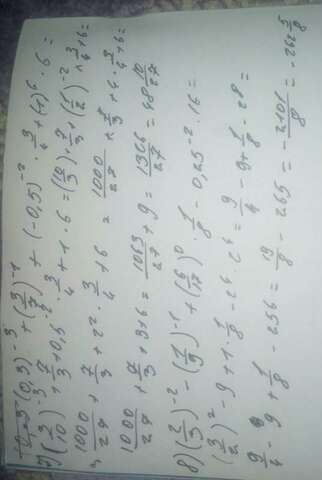 7) (0,3)⁻³ + (3/7)⁻¹ + (-0,5)⁻² · 3/4 + (-1)⁶ · 6 =
(3/10)⁻³ + 7/3 + 0,5⁻² · 3/4 + 1 · 6 = (10/3)³ + 7/3 + (1/2)⁻² · 3/4 + 6 =
= 1000/27 + 7/3 + 2² · 3/4 + 6 = 1000/27 + 7/3 + 4 · 3/4 + 6 =
1000/27 + 7/3 + 3 + 6 = 1063/27 + 9 = 1306/27 = 48 10/27
8) (2/3)⁻² - (1/9)⁻¹ + (6/17)⁰ · 1/8 - 0,25⁻² · 16 =
(3/2)² - 9 + 1 · 1/8 - 2⁴ · 2⁴ = 9/4 - 9 + 1/8 - 2⁸ =
9/4 - 9 + 1/8 - 256 = 19/8 - 265 = - 2101/8 = - 262 5/8